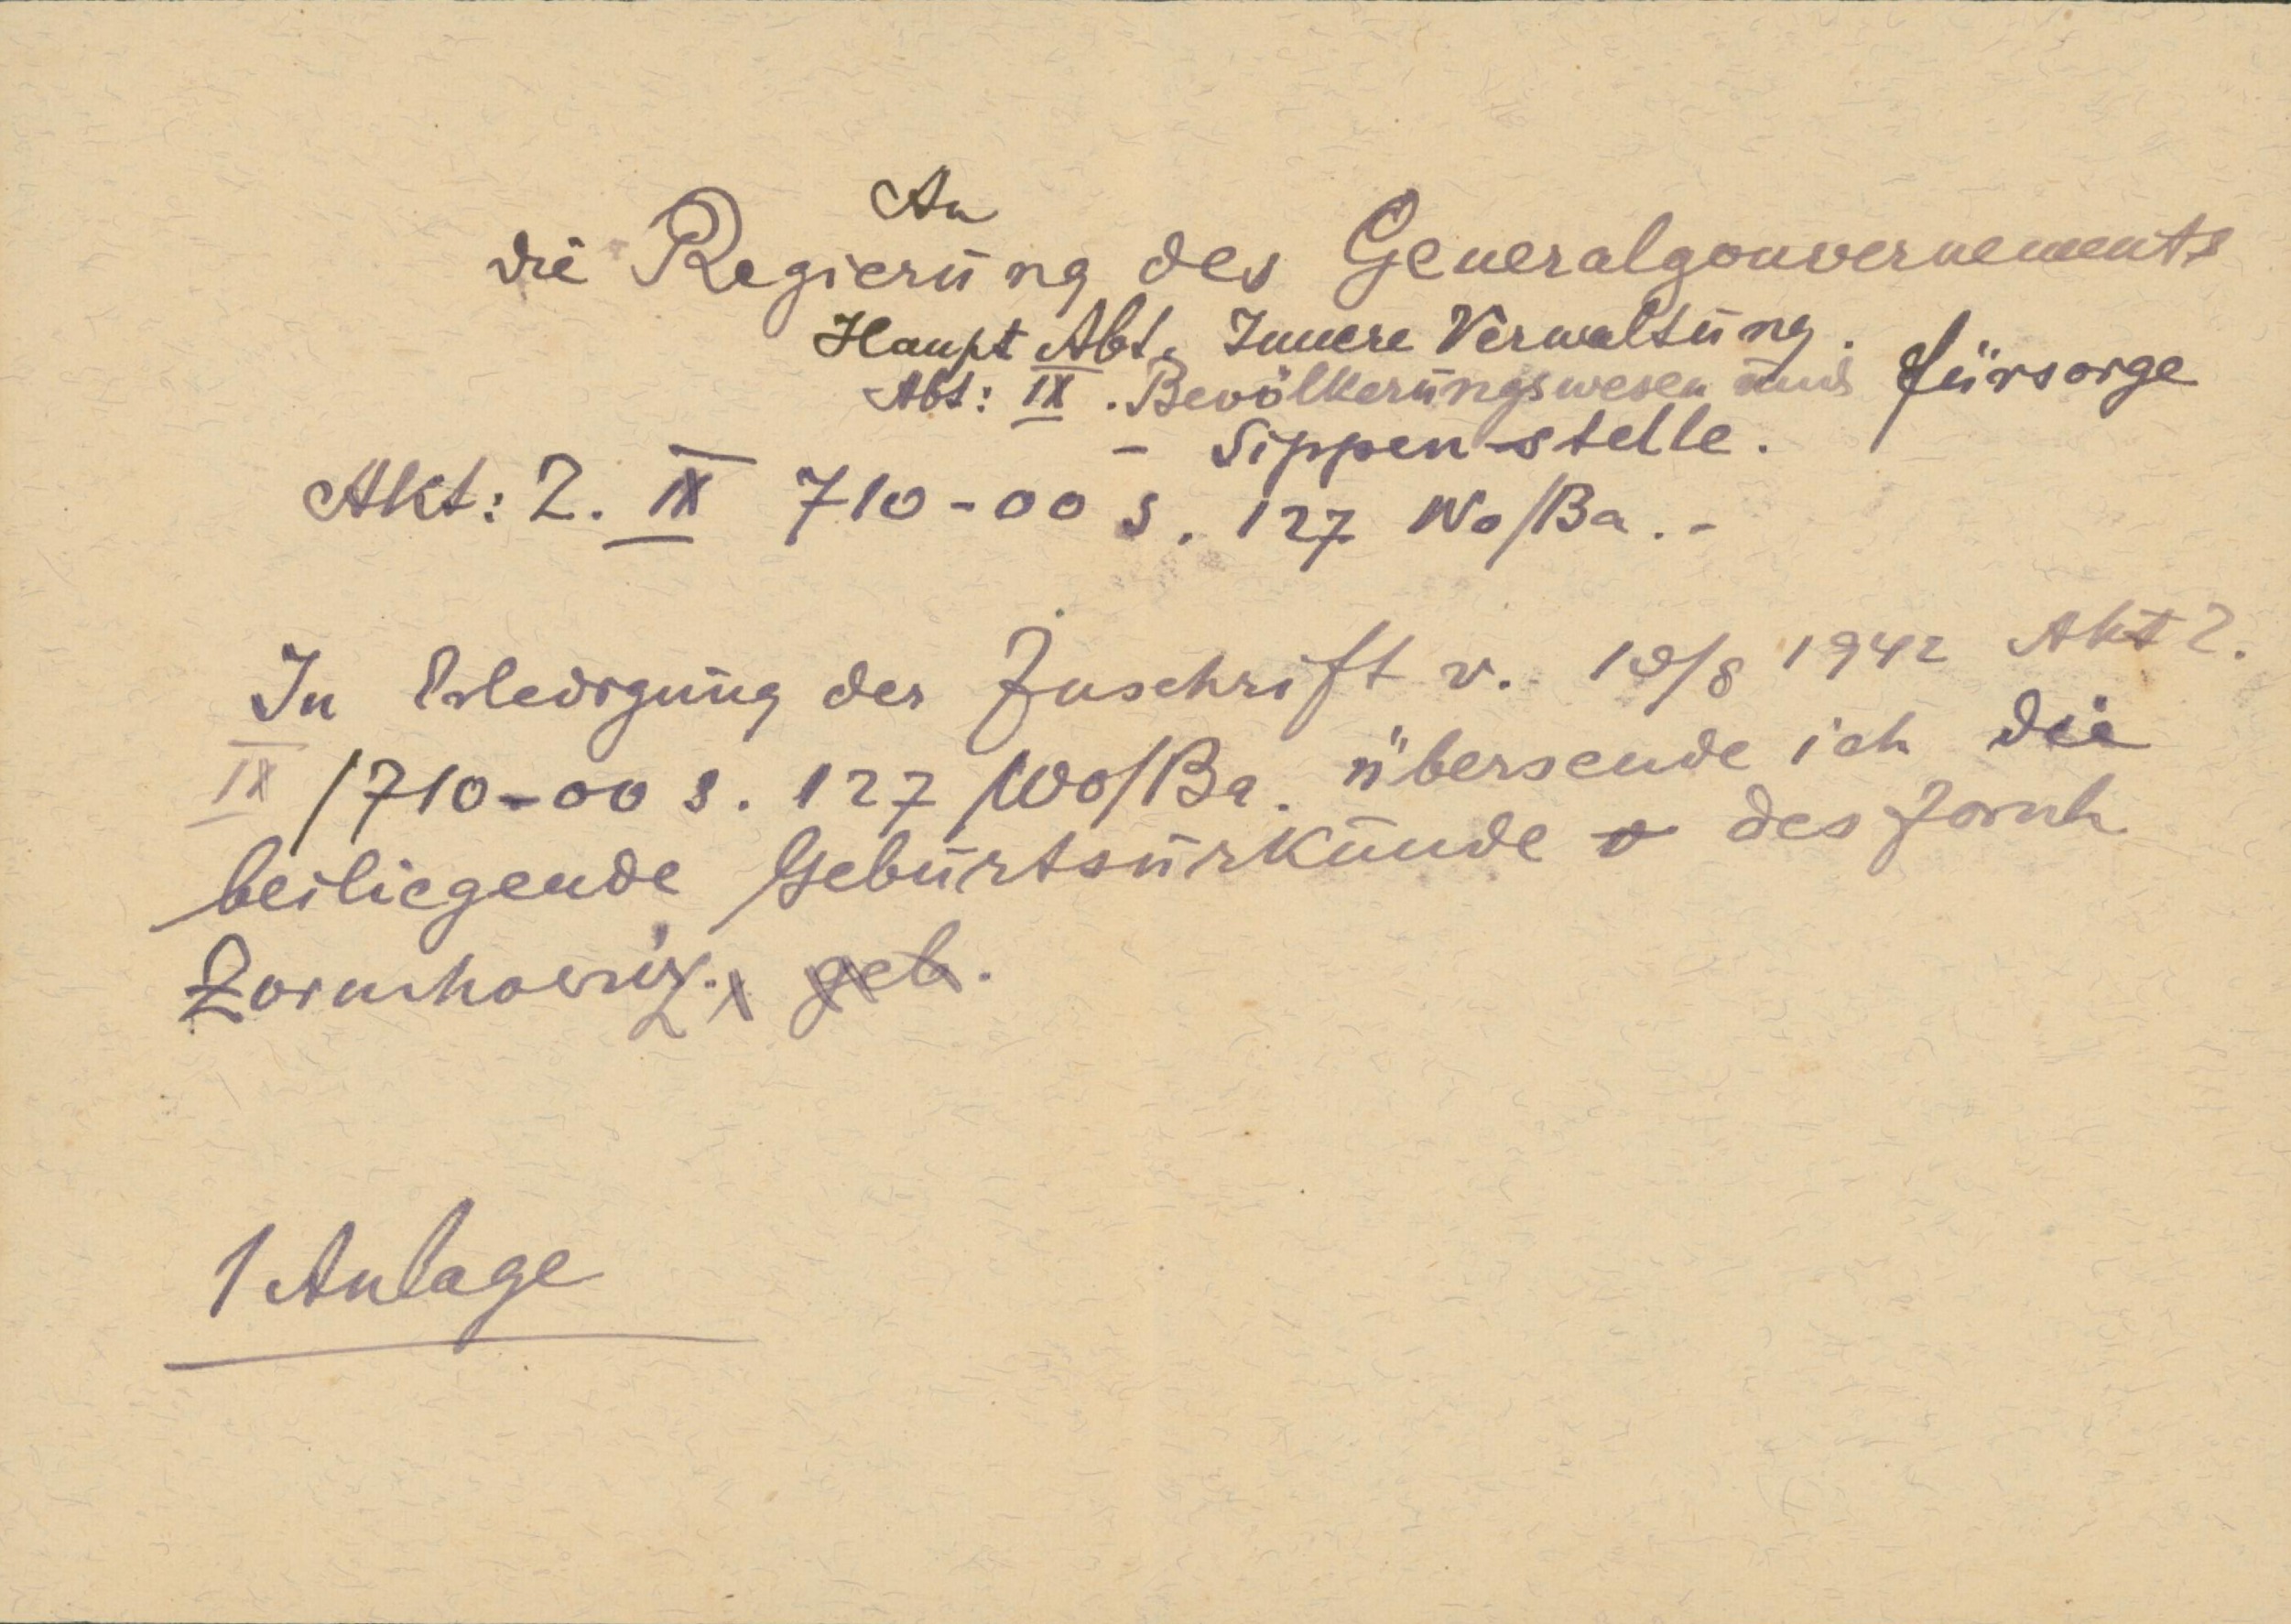 An
die Regierung des Generalgouvernements
Haupt Abt. Innere Verwaltung.
Abt: IX. Bevölkerungswesen und Fürsorge
- Sippenstelle.
Akt: Z. IX 710-00 S. 127 Wo/Ba.-
In Erledigung der Zuschrift v. 18/8 1942 Akt Z.
IX /710-00 S. 127/Wo/Ba. übersende ich die
beiliegende Geburtsurkunde des
geb.
1 Anlage